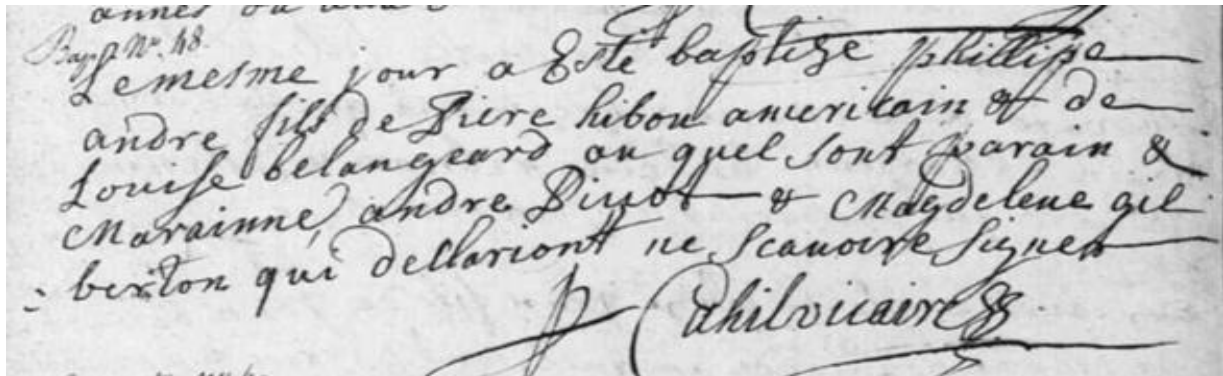 Bapt. No. 48.
Le mesme jour a Esté baptize phillipe
andre fils de Piere hibou americain & de
Louise belangeard au quel sont parain &
Marainne, andre Pivot & Magdelene gil
berton qui dellariont ne scavoire signer
Cahil vicaire